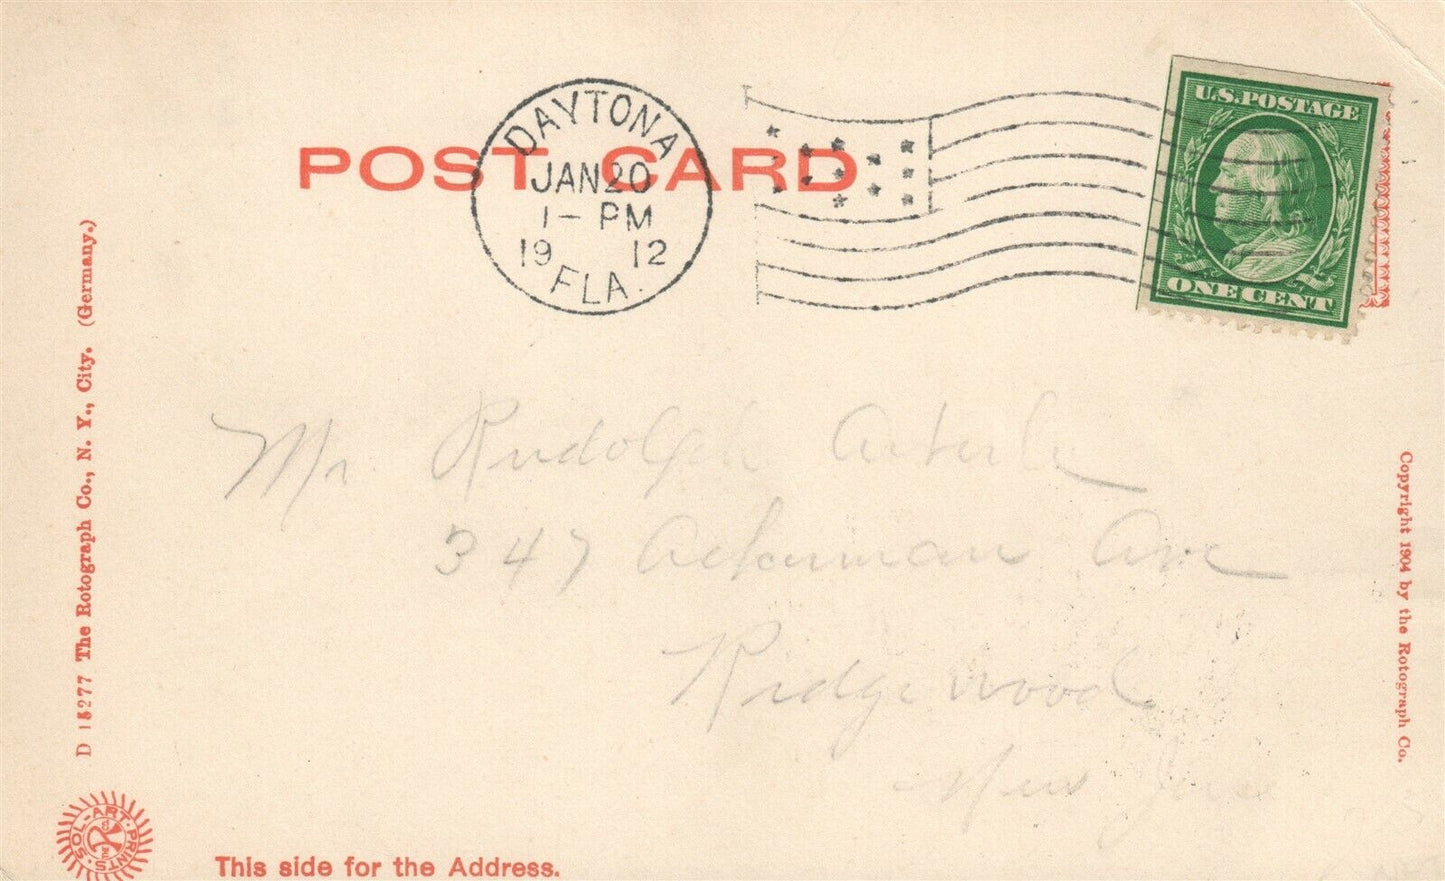 POST CARD
DAYTONA
JAN 20
1 - PM
19 12
FLA.
U.S. POSTAGE
ONE CENT
Mr. Rudolph
347 Ackerman Ave
Ridgewood
New
D 15277 The Rotograph Co., N. Y., City. (Germany.)
Copyright 1904 by the Rotograph Co.
SOL-ART-PRINTS
This side for the Address.